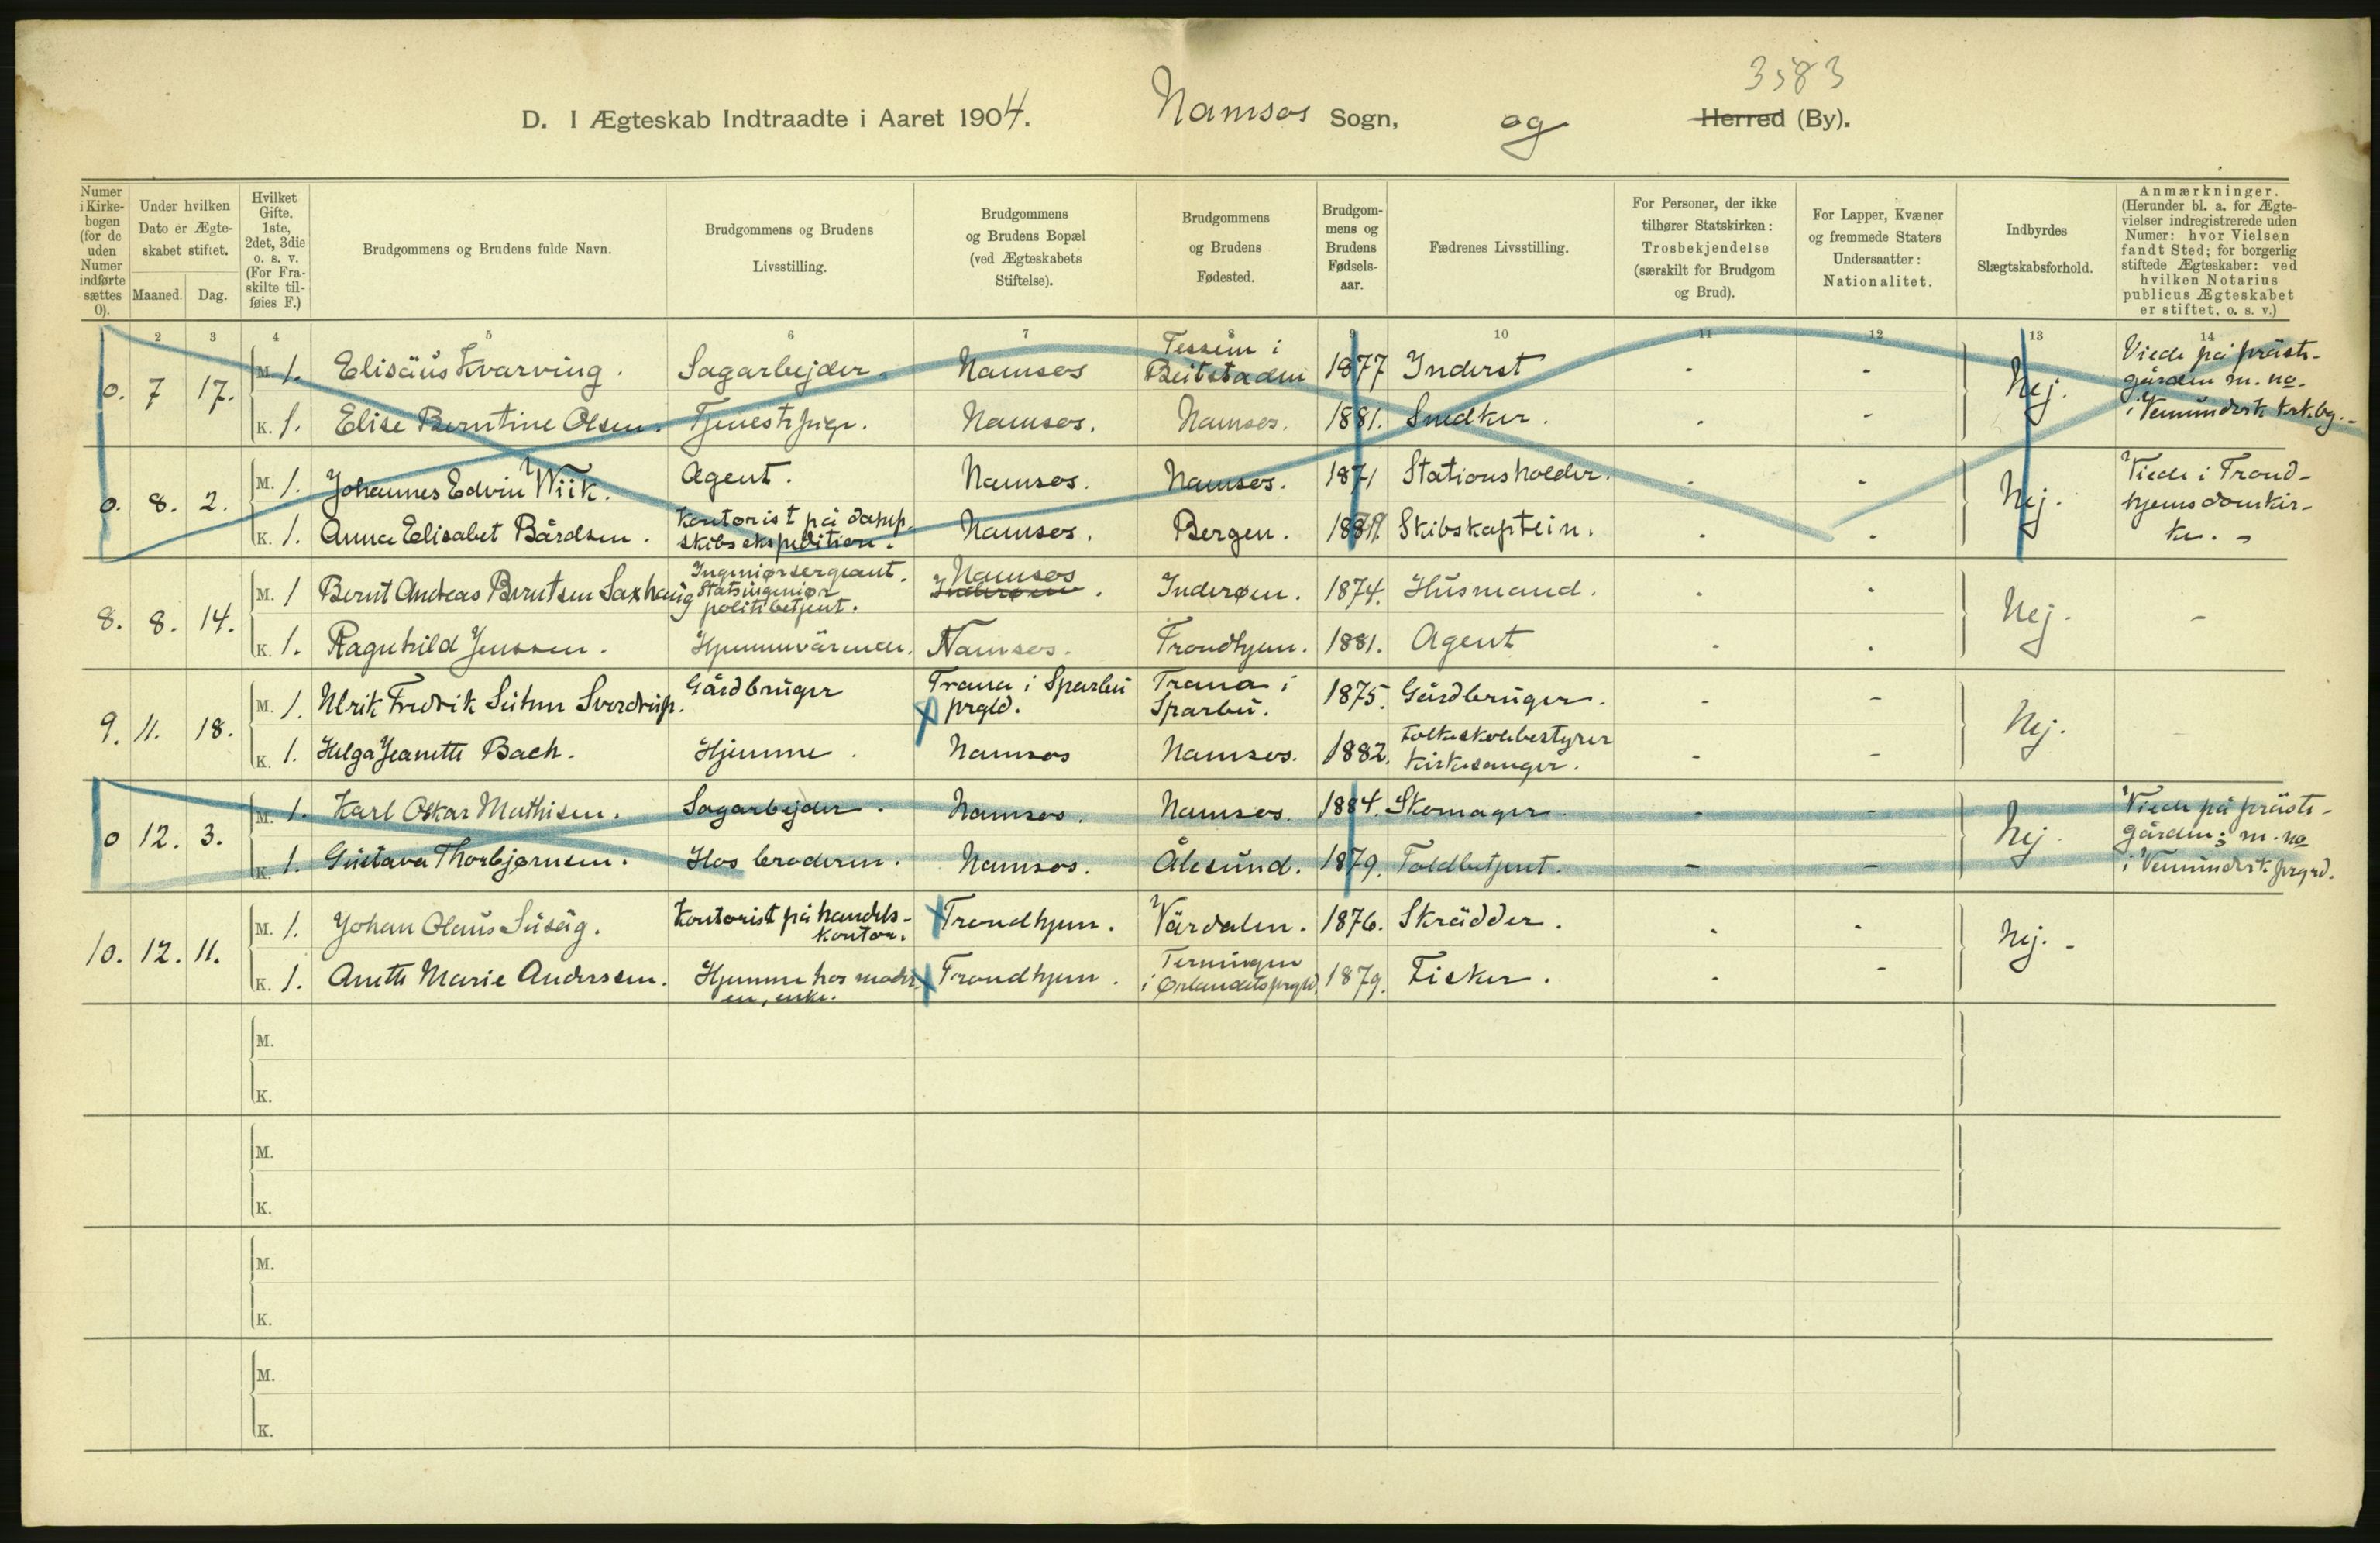 3583
D. I Ægteskab Indtraadte i Aaret 1904. Namsos Sogn, og Herred (By).
Numer i Kirkebogen (for de uden Numer indførte sættes 0).
Under hvilken Dato er Ægteskabet stiftet.
Maaned. Dag.
Hvilket Gifte. 1ste, 2det, 3die o. s. v. (For Fraskilte tilføies F.)
Brudgommens og Brudens fulde Navn.
Brudgommens og Brudens Livsstilling.
Brudgommens og Brudens Bopæl (ved Ægteskabets Stiftelse).
Brudgommens og Brudens Fødested.
Brudgommens og Brudens Fødselsaar.
Fædrenes Livsstilling.
For Personer, der ikke tilhører Statskirken: Trosbekjendelse (særskilt for Brudgom og Brud).
For Lapper, Kvæner og fremmede Staters Undersaatter: Nationalitet.
Indbyrdes Slægtskabsforhold.
Anmærkninger. (Herunder bl. a. for Ægtevielser indregistrerede uden Numer: hvor Vielsen fandt Sted; for borgerlig stiftede Ægteskaber: ved hvilken Notarius publicus Ægteskabet er stiftet, o. s. v.)
2 3 4 5 6 7 8 9 10 11 12 13 14
0. 7 17. M. 1. Elisäus Kvarving. Sagarbejder. Namsos Tessem i Beitstaden 1877 Inderst - - Nej. Viede på præstegården m. no. i Vemundvik kirkbg. -
K. 1. Elise Berntine Olsen. Tjenestepige. Namsos. Namsos. 1881. Snedker. - -
0. 8. 2. M. 1. Johannes Edvin Wiik. Agent. Namsos. Namsos. 1871 Stationsholder. - - Nej. Viede i Trondhjems domkirke. -
K. 1. Anna Elisabet Bårdsen. Kontorist på dampskibsekspedition. Namsos. Bergen. Skibskaptein. - -
8. 8. 14. M. 1 Bernt Andreas Berntsen Saxhaug Ingeniørsergeant. Statsingeniør politibetjent. Namsos Inderøen. Inderøen. 1874. Husmand. - - Nej. -
K. 1. Ragnhild Jenssen. Hjemmeværende. Namsos. Trondhjem. 1881. Agent - -
9. 11. 18. M. 1. Ulrik Fredrik Suhm Sverdrup. Gårdbruger Trana i Sparbu prgld. Trana i Sparbu. 1875. Gårdbruger. - - Nej. -
K. 1. Helga Jeanette Bach. Hjemme. Namsos Namsos. 1882. Folkeskolebestyrer kirkesanger. - -
0 12. 3. M. 1. Karl Oskar Mathisen. Sagarbejder. Namsos. Namsos. 1884. Skomager. - - Nej. Viede på præstegården; m. no i Vemundvik prgjd.
K. 1. Gustava Thorbjørnsen. Hos broderen. Namsos. Ålesund. 1879. Toldbetjent. - -
10. 12. 11. M. 1. Johan Olaus Susäg. Kontorist på handelskontor. Trondhjem. Värdalen. 1876. Skrädder. - - Nej. -
K. 1. Anette Marie Anderssen. Hjemme hos moderen, enke. Trondhjem. Terningen i Ørlandets prgld. 1879. Fisker. - -
M.
K.
M.
K.
M.
K.
M.
K.